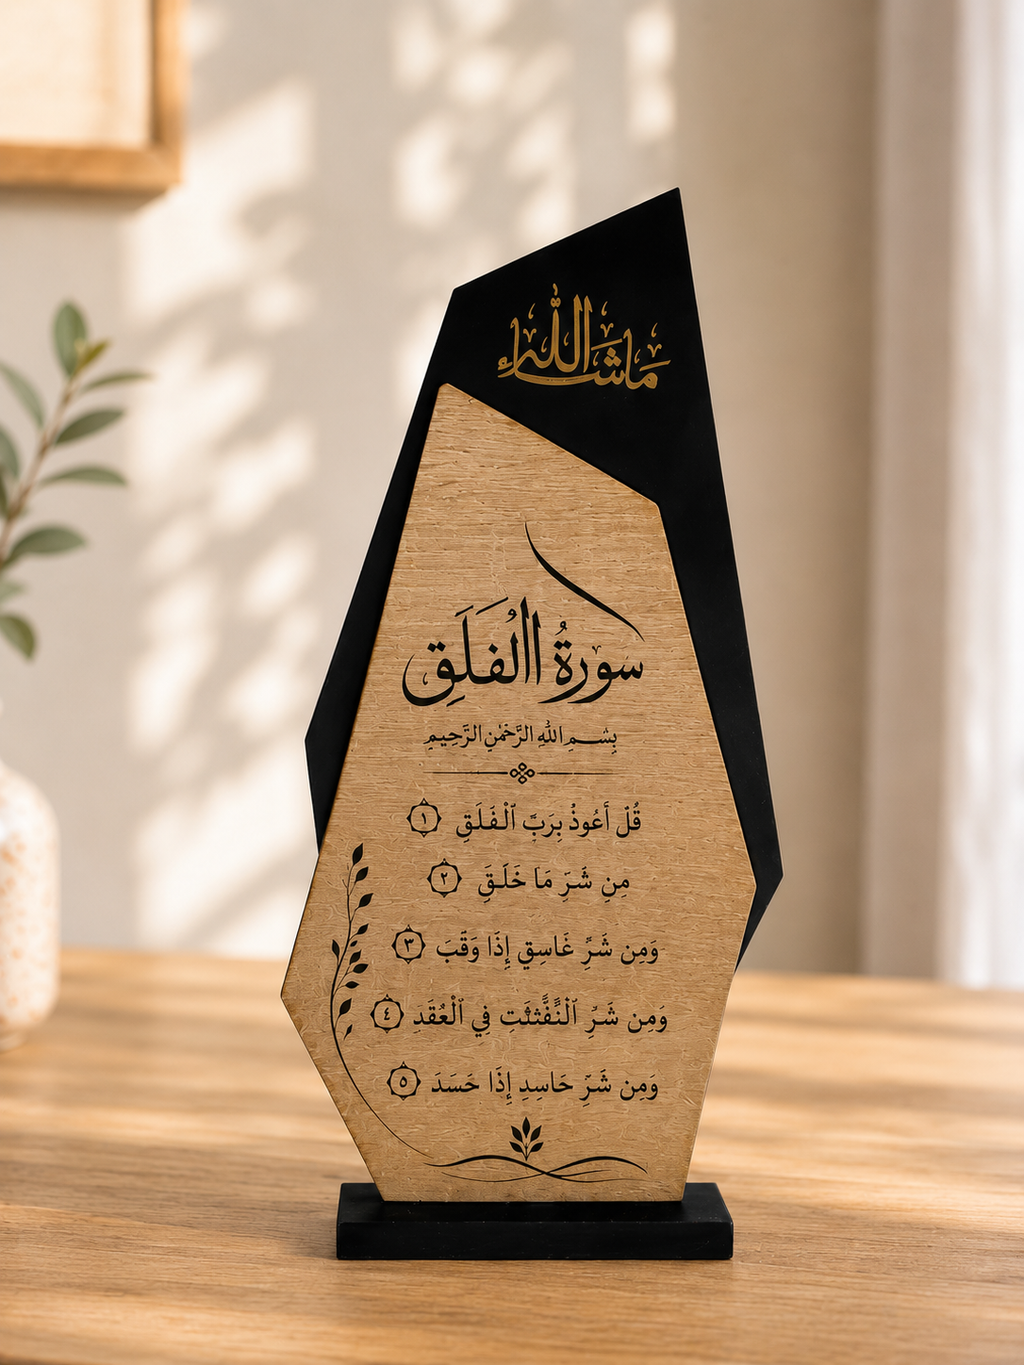 ما شاء الله
سورة الفلق
بِسْمِ اللهِ الرَّحْمٰنِ الرَّحِيمِ
قُلْ أَعُوذُ بِرَبِّ ٱلْفَلَقِ ١
مِن شَرِّ مَا خَلَقَ ٢
وَمِن شَرِّ غَاسِقٍ إِذَا وَقَبَ ٣
وَمِن شَرِّ ٱلنَّفَّٰثَٰتِ فِي ٱلْعُقَدِ ٤
وَمِن شَرِّ حَاسِدٍ إِذَا حَسَدَ ٥